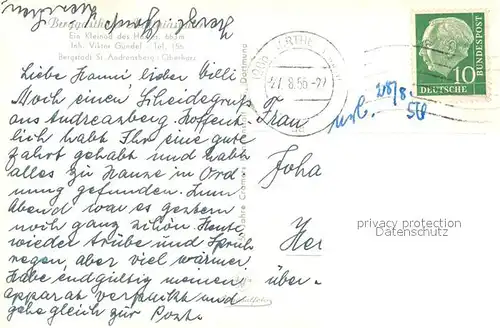 Berggasthof
Ein Kleinod des Harzes 660m
Inh. Viktor Gündel - Tel. 156
Bergstadt St. Andreasberg - Oberharz
Liebe Hanni lieber Willi
Noch einen Scheidegruß
aus Andreasberg. Hoffent-
lich habt Ihr eine gute
Fahrt gehabt und habt
alles zu Hause in Ord
nung gefunden. Zum
Abend war es gestern
noch ganz schön. Heute
wieder trübe und Sprüh
regen, aber viel wärmer
Habe endgültig meinen
apparat verpackt und
gehe gleich zur Post.
über-
27.8.56
DEUTSCHE
BUNDESPOST
10
28/8.
56
Frau
Joha
Her
Cramers
Dortmund
privacy protection
Datenschutz